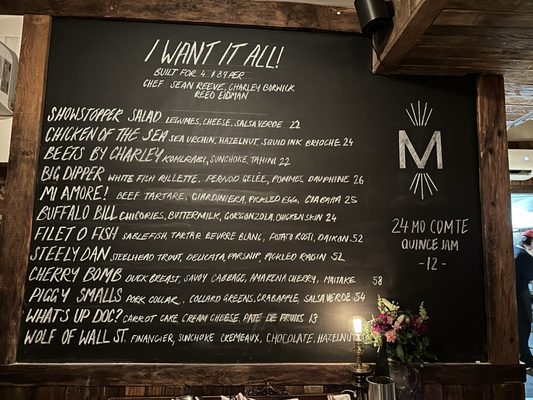 I WANT IT ALL!
BUILT FOR 4 $89 PER
CHEF SEAN REEVE, CHARLEY BORWICK
REED EIDMAN
SHOWSTOPPER SALAD LEGUMES, CHEESE, SALSA VERDE 22
CHICKEN OF THE SEA SEA URCHIN, HAZELNUT, SQUID INK BRIOCHE 24
BEETS BY CHARLEY KOHLRABI, SUNCHOKE, TAHINI 22
BIG DIPPER WHITE FISH RILLETTE, PERNOD GELÉE, POMMES DAUPHINE 26
MI AMORE! BEEF TARTARE, GIARDINIERA, PICKLED EGG, CIABATTA 25
BUFFALO BILL CHICORIES, BUTTERMILK, GORGONZOLA, CHICKEN SKIN 24
FILET O FISH SABLEFISH, TARTAR BEURRE BLANC, POTATO ROSTI, DAIKON 52
STEELY DAN STEELHEAD TROUT, DELICATA, PARSNIP, PICKLED RAISIN 52
CHERRY BOMB DUCK BREAST, SAVOY CABBAGE, AMARENA CHERRY, MAITAKE 58
PIGGY SMALLS PORK COLLAR, COLLARD GREENS, CRABAPPLE, SALSA VERDE 54
WHATS UP DOC? CARROT CAKE, CREAM CHEESE, PATE DE FRUITS 13
WOLF OF WALL ST. FINANCIER, SUNCHOKE CREMEAUX, CHOCOLATE, HAZELNUT
M
24 MO COMTE
QUINCE JAM
- 12 -